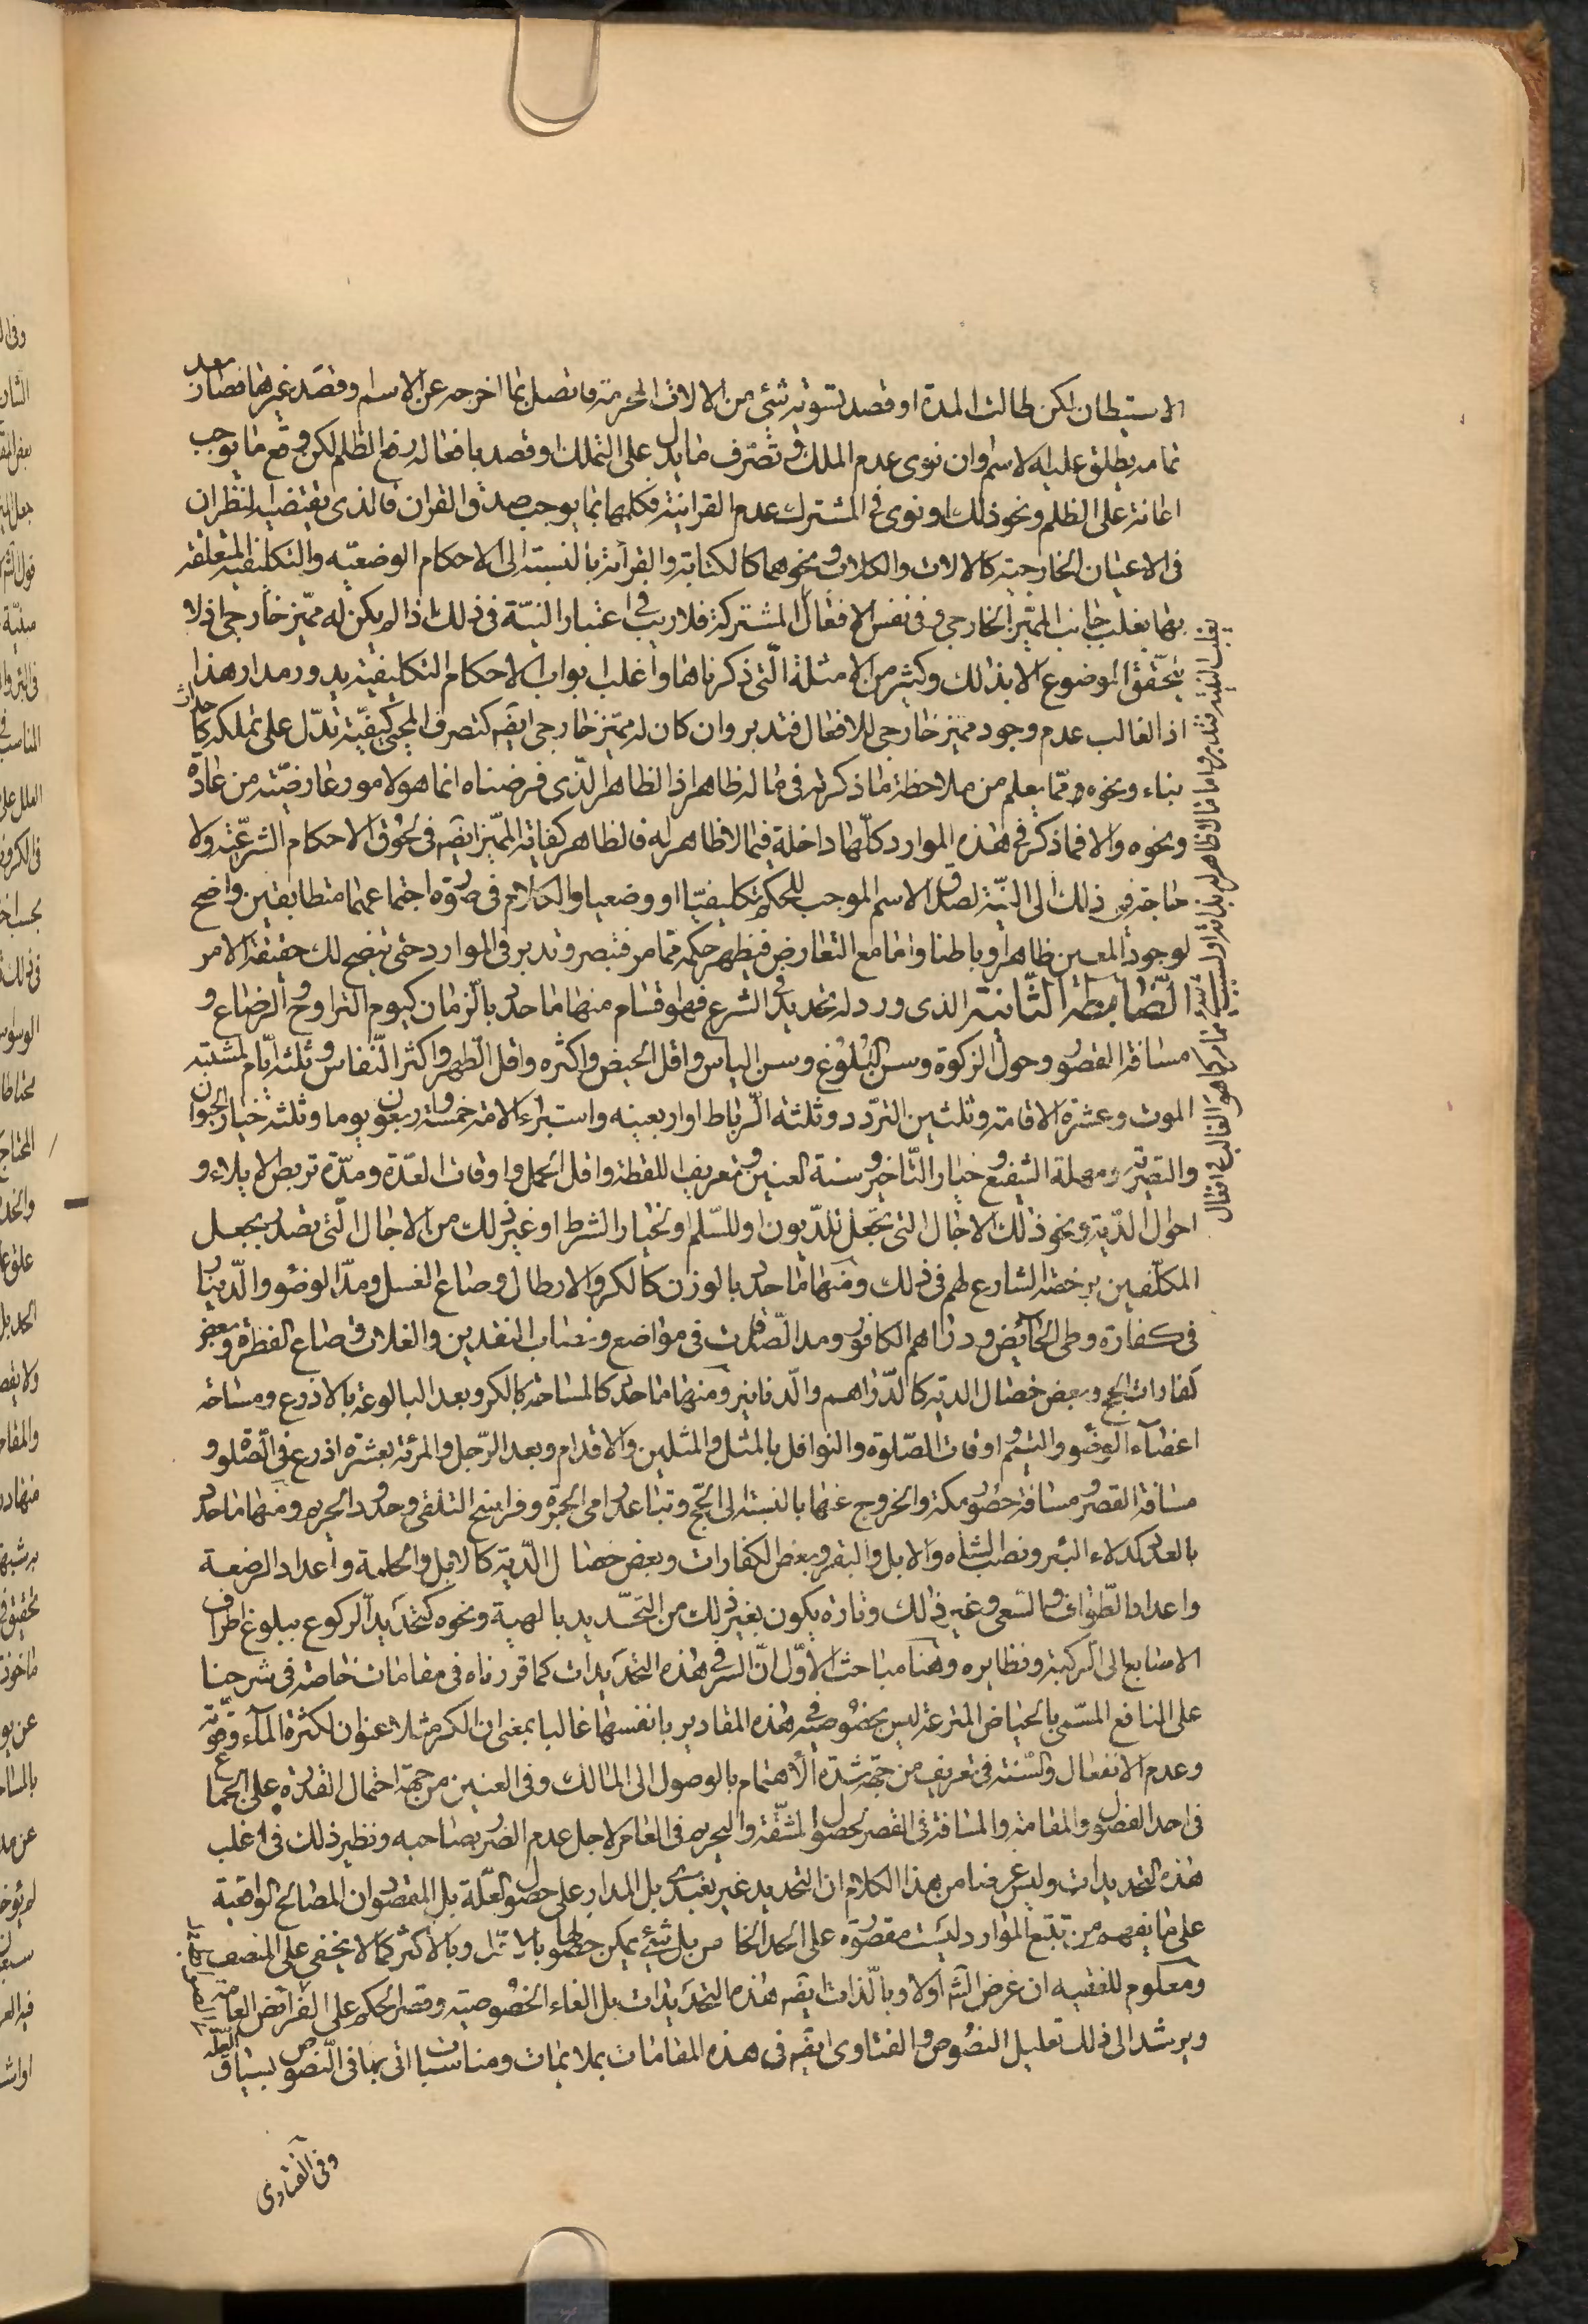 الاستيطان لكن طالت المدة او قصد تسوية شئ من الالات المحرمة فاتصل بما اخرجه عن الاسم او قصد غيرها فصار بعد
تمامه يطلق عليه الاسم وان نوى عدم الملك وتصرف ما يدل على التملك او قصد بافعاله رفع الظلم لكن وقع ما يوجب
اعانة على الظلم ونحو ذلك او نوى في المشترك عدم القرانية وكلها مما يوجب صدق القران فالذى يقتضيه النظر ان
فى الاعيان الخارجية كالالات والكلاب ونحوهما كالكتابة والقرائة بالنسبة الى الاحكام الوضعيه والتكليفية المتعلقة
بهما يغلب جانب المميز الخارجي وفى نفس الافعال المشتركة فلا ريب فى اعتبار النيّة فى ذلك اذا لم يكن له مميّز خارجى اذ لا
يتحقق الموضوع الا بذلك وكثير من الامثلة الّتى ذكرناها واغلب ابواب الاحكام التكليفية يدور مدار هذا
اذ الغالب عدم وجود مميز خارجى للافعال فتدبر وان كان له مميز خارجى ايضه كتصرف المحيى كيفيّة تدلّ على تملكه كاحداث
بناء ونحوه ومما يعلم من ملاحظة ما ذكرته فى ماله ظاهر اذ الظاهر الّذى فرضناه انما هو لامور عارضيّة من عادة
ونحوه والا فما ذكر فى هذه الموارد كلّها داخلة فيما لا ظاهر له فالظاهر كفاية المميّز ايضه فى لحوق الاحكام الشرعيّة ولا
حاجة فى ذلك الى النيّة لصدق الاسم الموجب للحكم تكليفيّا او وضعيا والكلام فى صورة اجتماعهما متطابقين واضح
لوجود المعين ظاهرا وباطنا واما مع التعارض فيظهر حكمه مما مر فتبصر وتدبر فى الموارد حتى يتضح لك حقيقة الامر
الضابطة الثّانية الذى ورد له تحديد فى الشرع فهو اقسام منها ما حد بالزمان كيوم التراوح والرضاع و
مسافة القصر وحول الزكوة وسن البلوغ وسن الياس واقل الحيض واكثره واقل الطهر واكثر النّفاس وثلثة ايّام لمشتبه
الموت وعشرة الاقامة وثلثين التردّد وثلثة الرّباط او اربعينه واستبراء الامة خمسة واربعون يوما وثلثة خيار الحيوان
والتصرية ومهلة الشفيع وخيار التّاخير وسنة العنين وتعريف اللقطة واقل الحمل واوقات العدّة ومدّة تربص الايلاء و
احوال الدّية ونحو ذلك الاجال التى تجعل للدّيون او للسّلم او لخيار الشرط او غير ذلك من الاجال الّتى تصدر بجعل
المكلّفين برخصة الشارع لهم فى ذلك ومنها ما حد بالوزن كالكر والارطال وصاع الغسل ومدّ الوضوء والدّينار
فى كفارة وطى الحائض ودراهم الكافور ومد الصّدقات فى مواضع ونصاب النقدين والغلات وصاع الفطرة وبعض
كفارات الحج وبعض خصال الدية كالدّراهم والدّنانير ومنها ما حد كالمساحة كالكر وبعد البالوعة بالاذرع ومساحة
اعضاء الوضوء والتيمم واوقات الصّلوة والنوافل بالمثل والمثلين والاقدام وبعد الرّجل والمرئة بعشرة اذرع فى الصّلوة و
مسافة القصر ومسافة حضور مكة والخروج عنها بالنسبة الى الحجّ وتباعد رامى الجمرة وفراسخ التلقى وحدود الحريم ومنها ما حد
بالعدد كدلاء البئر ونصب الشاه والابل والبقر وبعض الكفارات وبعض خصال الدّية كالابل والحلة واعداد الرضعة
واعداد الطّواف والسّعى وغير ذلك وتارة يكون بغير ذلك من التحديد بالهيئة ونحوه كتحديد الركوع ببلوغ اطراف
الاصابع الى الركبة ونظايره وهنا مباحث الأوّل انّ السر فى هذه التحديدات كما قررناه فى مقامات خاصة فى شرحنا
على النافع المسمّى بالحياض المترعة ليس بخصوصية فى هذه المقادير بانفسها غالبا بمعنى ان الكر مثلا عنوان لكثرة الماء وقوّته
وعدم الانفعال والسّنة فى تعريف من جهة شدّة الأهتمام بالوصول الى المالك وفى العنين من جهة احتمال القدرة على الجماع
فى احد الفصول والمقامة والمسافة فى القصر لحصول المشقّة والحريم فى العامر لاجل عدم الضرر بصاحبه ونظير ذلك فى اغلب
هذه التحديدات وليس غرضنا من هذا الكلام ان التحديد غير تعبدى بل المدار على حصول العلّة بل المقصود ان المصالح الواقعية
على ما يفهم من تتبّع الموارد ليست مقصورة على الحد الخاص بل شئ يمكن حصولها بالاقل وبالاكثر كما لا يخفى على المنصف
ومعلوم للفقيه ان غرض الشّه اولا وبالّذات ايضه هذه التحديدات بل الغاء الخصوصية وقصر الحكم على الفرائض العامة
ويرشد الى ذلك تعليل النصوص والفتاوى ايضه فى هذه المقامات بملايمات ومناسبات اتى بها فى النّصوص لسياق العلّة
وفى الفتاوى